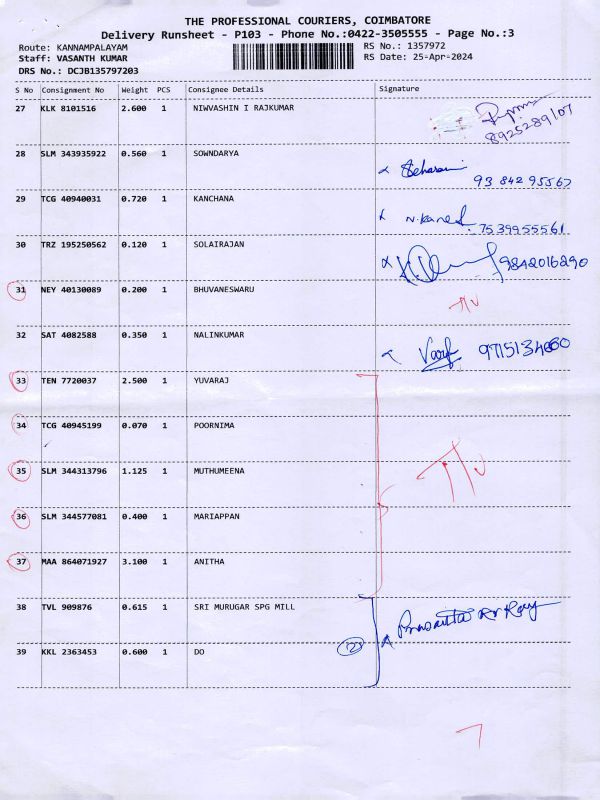 THE PROFESSIONAL COURIERS, COIMBATORE
Delivery Runsheet - P103 - Phone No.:0422-3505555 - Page No.:3
Route: KANNAMPALAYAM RS No.: 1357972
Staff: VASANTH KUMAR RS Date: 25-Apr-2024
DRS No.: DCJB135797203
S No Consignment No Weight PCS Consignee Details Signature
27 KLK 8101516 2.600 1 NIWVASHIN I RAJKUMAR
8925289107
28 SLM 343935922 0.560 1 SOWNDARYA
93 842 95567
29 TCG 40940031 0.720 1 KANCHANA
7539955561
30 TRZ 195250562 0.120 1 SOLAIRAJAN
9842016290
31 NEY 40130089 0.200 1 BHUVANESWARU
32 SAT 4082588 0.350 1 NALINKUMAR
33 TEN 7720037 2.500 1 YUVARAJ
34 TCG 40945199 0.070 1 POORNIMA
35 SLM 344313796 1.125 1 MUTHUMEENA
36 SLM 344577081 0.400 1 MARIAPPAN
37 MAA 864071927 3.100 1 ANITHA
38 TVL 909876 0.615 1 SRI MURUGAR SPG MILL
39 KKL 2363453 0.600 1 DO
2
7